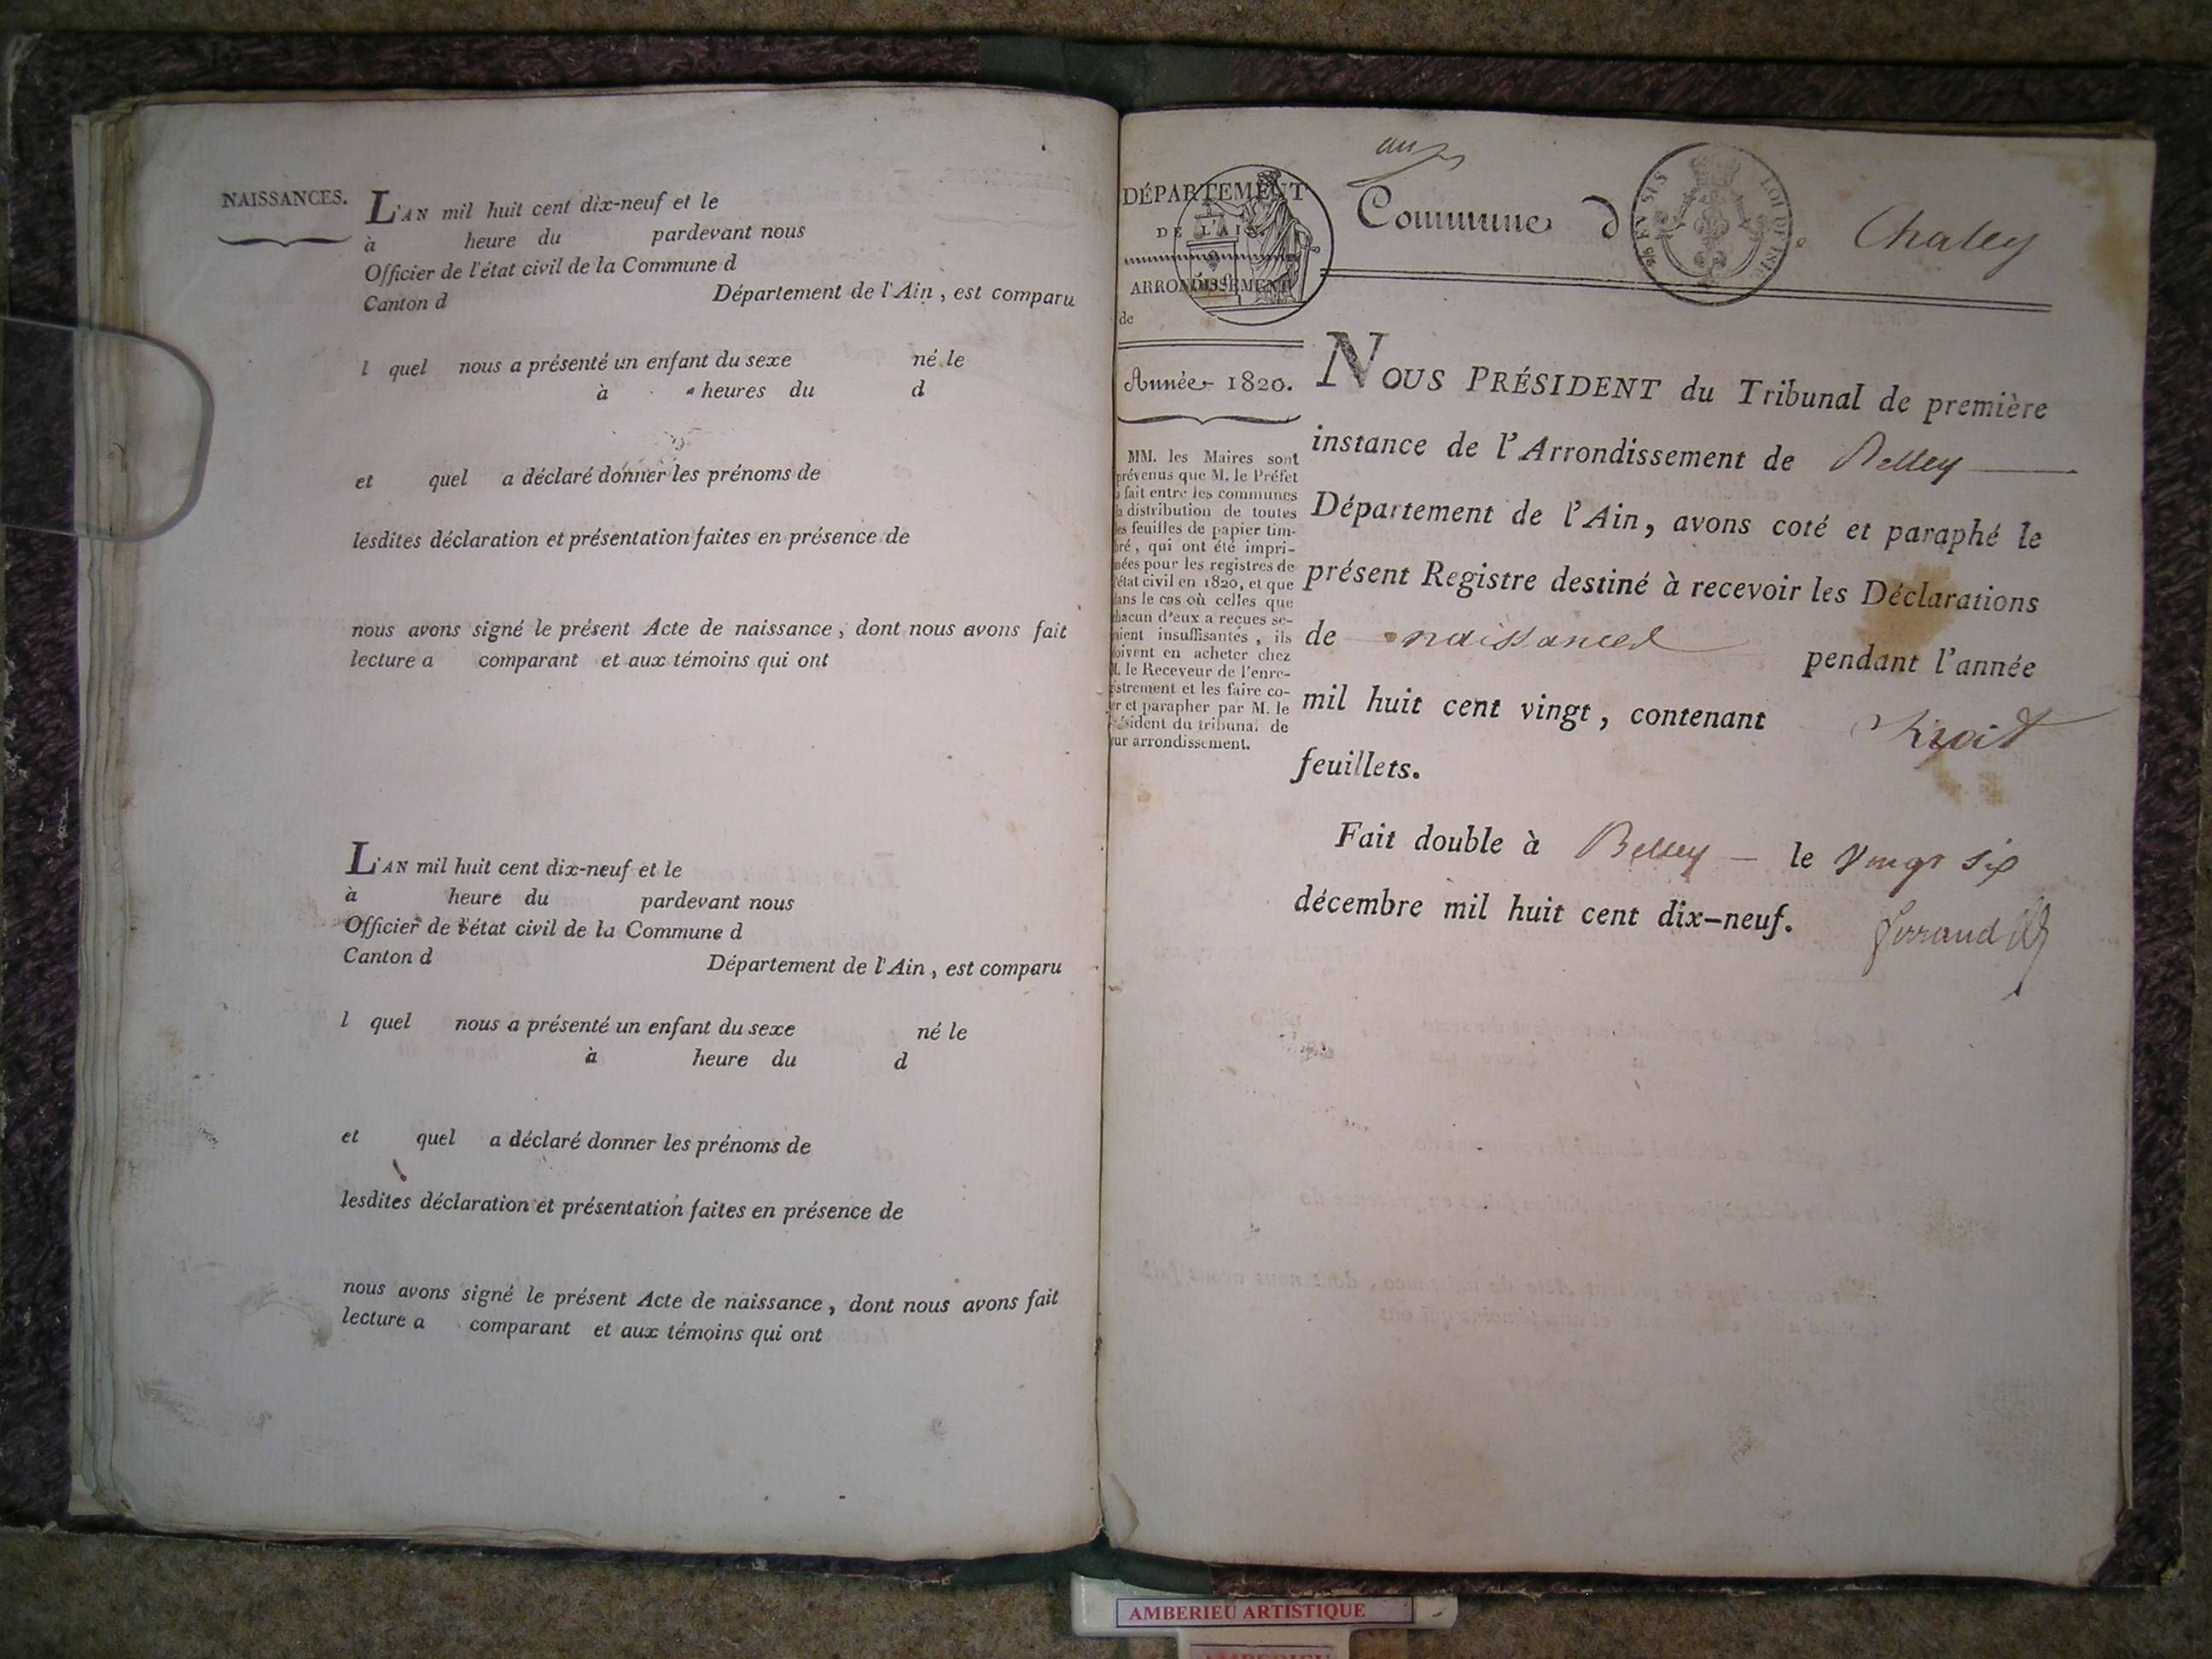 NAISSANCES.
L'AN mil huit cent dix-neuf et le
à heure du pardevant nous
Officier de l'état civil de la Commune d
Canton d Département de l'Ain, est comparu
l quel nous a présenté un enfant du sexe né le
à heures du d
et quel a déclaré donner les prénoms de
lesdites déclaration et présentation faites en présence de
nous avons signé le présent Acte de naissance, dont nous avons fait
lecture a comparant et aux témoins qui ont
L'AN mil huit cent dix-neuf et le
à heure du pardevant nous
Officier de l'état civil de la Commune d
Canton d Département de l'Ain, est comparu
l quel nous a présenté un enfant du sexe né le
à heure du d
et quel a déclaré donner les prénoms de
lesdites déclaration et présentation faites en présence de
nous avons signé le présent Acte de naissance, dont nous avons fait
lecture a comparant et aux témoins qui ont
DÉPARTEMENT
DE L'AIN.
ARRONDISSEMENT
de
Année 1820.
MM. les Maires sont
prévenus que M. le Préfet
a fait entre les communes
la distribution de toutes
les feuilles de papier tim-
bré, qui ont été impri-
mées pour les registres de
l'état civil en 1820, et que
dans le cas où celles que
chacun d'eux a reçues se-
raient insuffisantes, ils
doivent en acheter chez
M. le Receveur de l'enre-
gistrement et les faire co-
ter et parapher par M. le
Président du tribunal de
leur arrondissement.
Commune de Chaley
NOUS PRÉSIDENT du Tribunal de première
instance de l'Arrondissement de Belley
Département de l'Ain, avons coté et paraphé le
présent Registre destiné à recevoir les Déclarations
de naissances pendant l'année
mil huit cent vingt, contenant
feuillets.
Fait double à Belley le vingt six
décembre mil huit cent dix-neuf.
AMBERIEU ARTISTIQUE
AMBERIEU